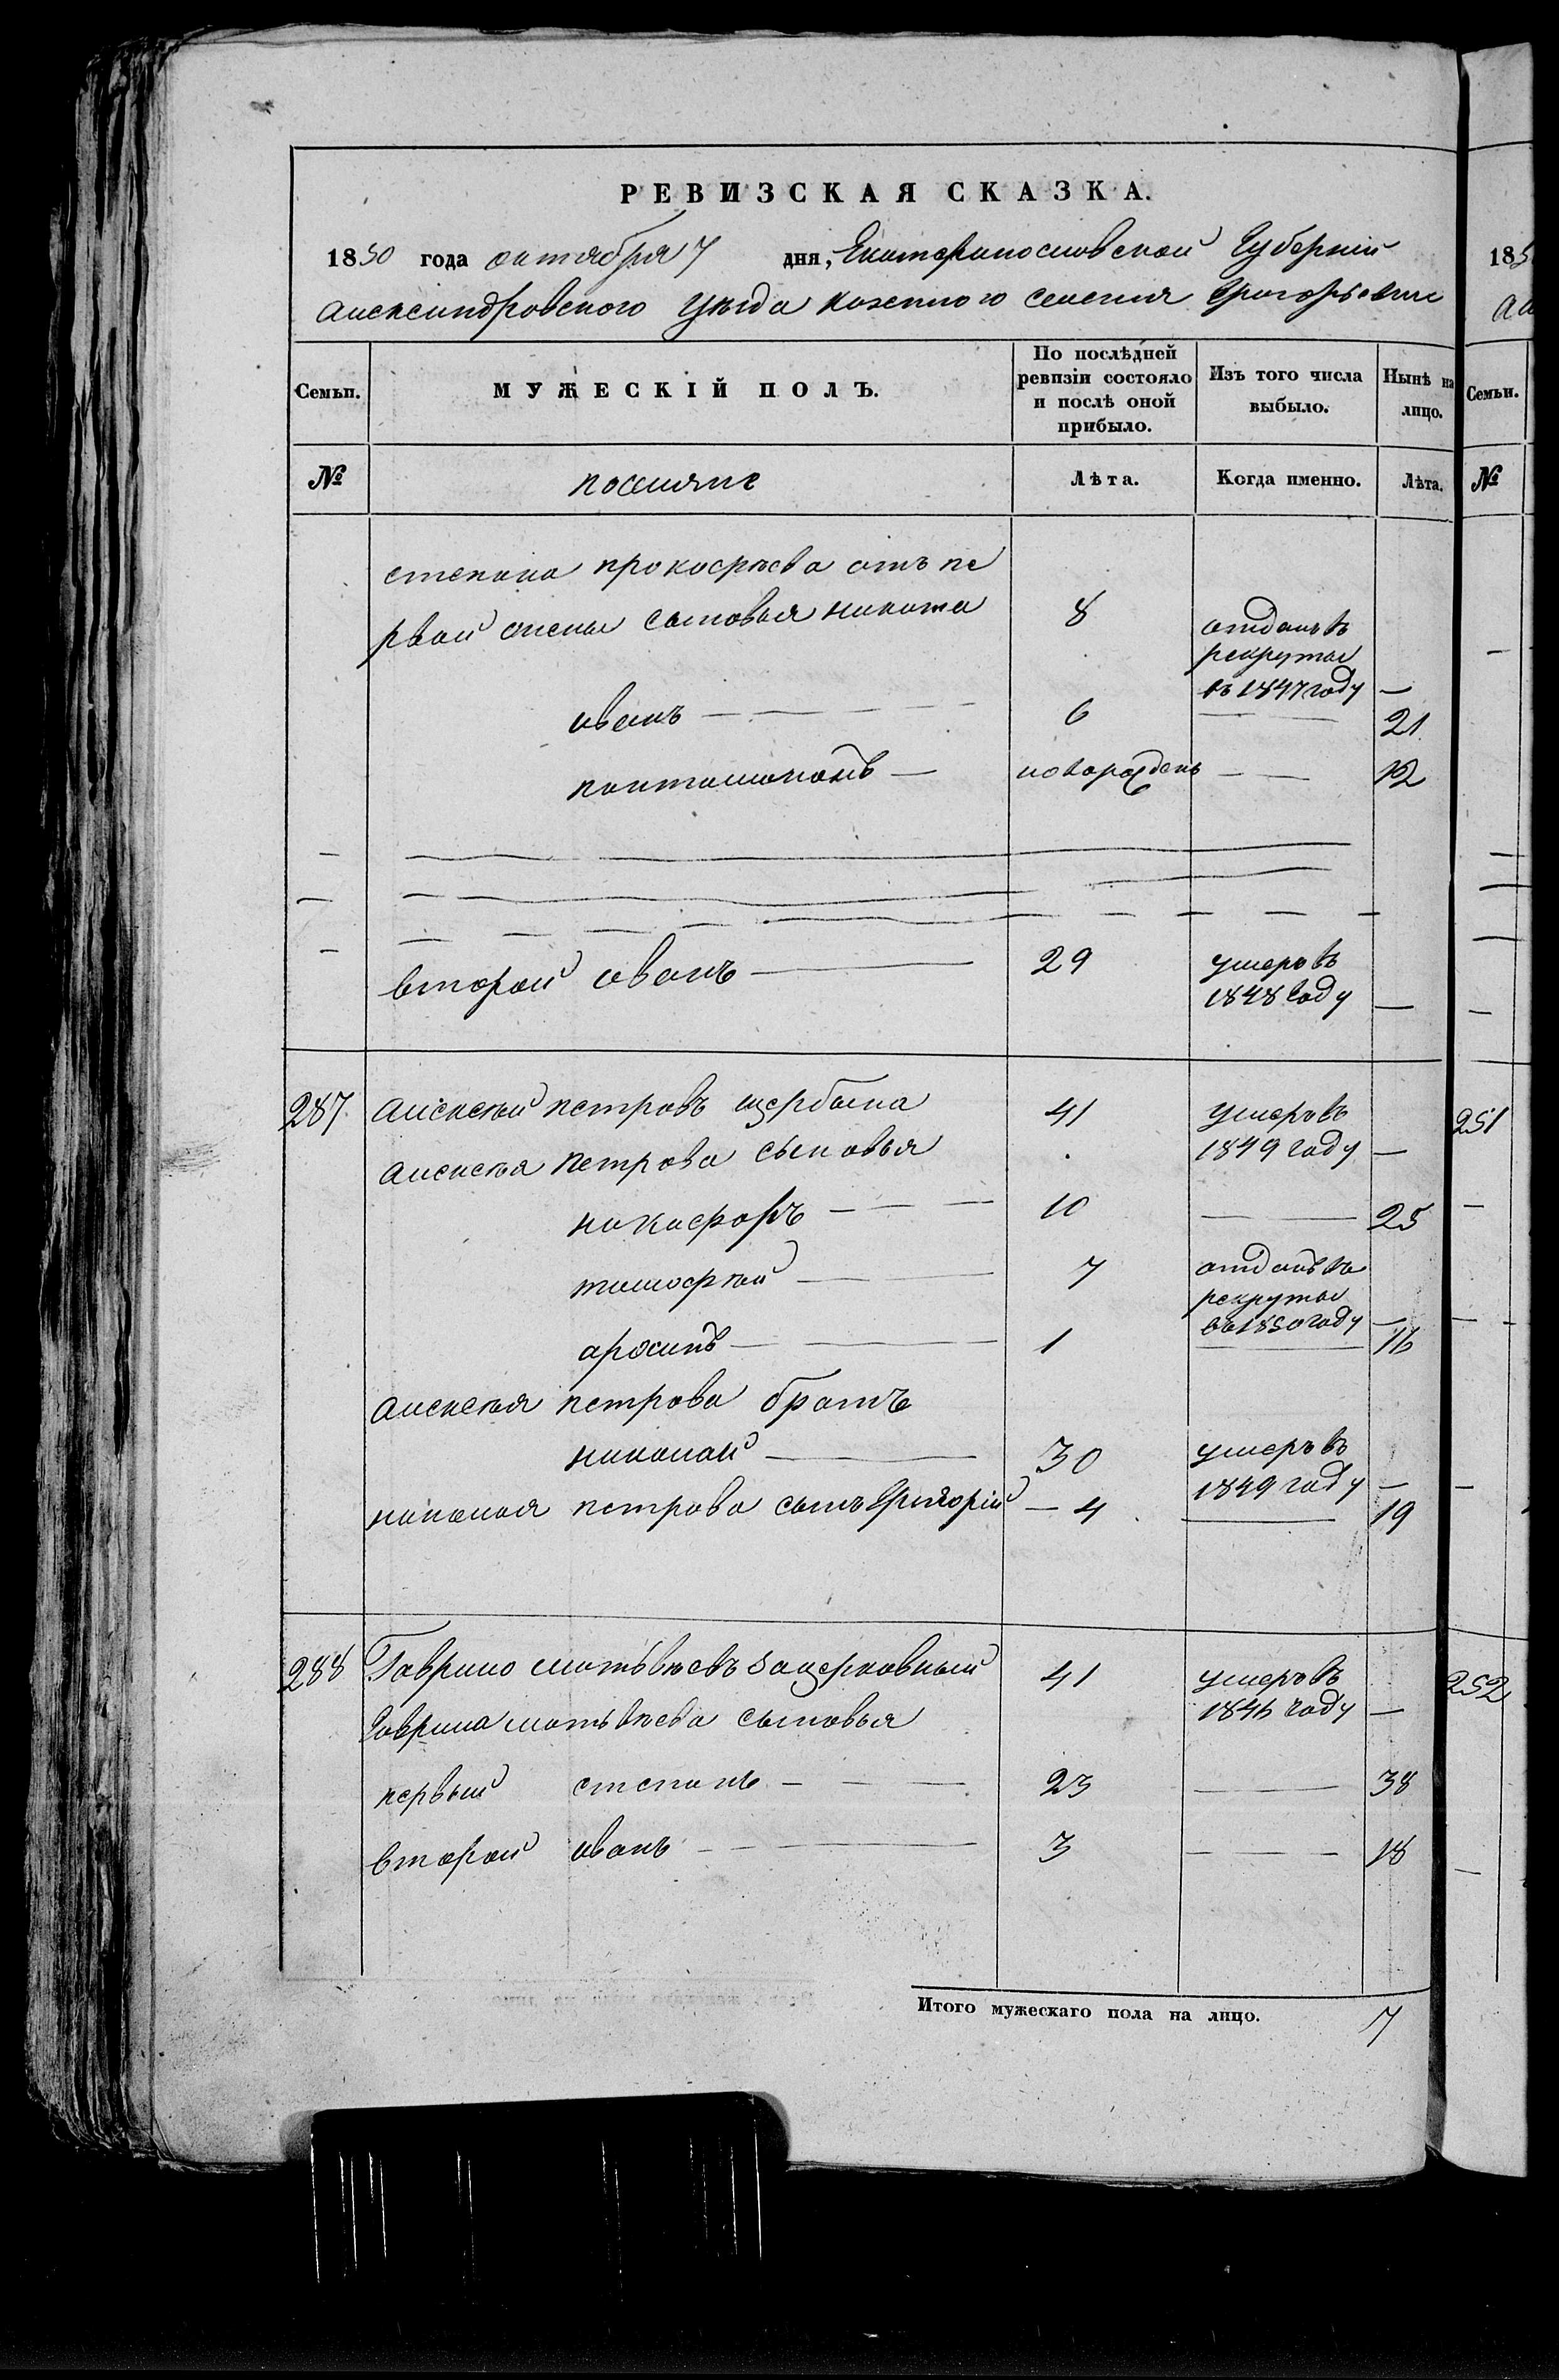 РЕВИЗСКАЯ СКАЗКА.
1850 года октября 7 дня, Екатеринославской Губернiи
Александровского уѣзда казенного селенiя Григорьевки
Семьи. МУЖЕСКIЙ ПОЛЪ. По послѣдней ревизiи состояло и послѣ оной прибыло. Изъ того числа выбыло. Нынѣ на лицо. Семьи.
№ поселяне Лѣта. Когда именно. Лѣта. №
степана прокофѣева отъ пе
рвой жены сыновья никита 8 отданъ въ
рекруты
въ 1847 году —
иванъ 6 21
пантилимонъ новорожденъ 12
второй иванъ 29 умеръ въ
1848 году —
287 алексѣй петровъ щербына 41 умеръ въ 251
алексѣя петрова сыновья 1849 году —
никифоръ 10 25
тимофѣй 7 отданъ въ
рекруты
въ 1850 году —
архипъ 1 16
алексѣя петрова братъ
николай 30 умеръ въ
1849 году —
николая петрова сынъ Григорiй — 4 19
288 Гаврило матьвѣевъ зацерковный 41 умеръ въ 252
Гаврила матьвѣева сыновья 1846 году —
первый степанъ 23 38
второй иванъ 3 18
Итого мужескаго пола на лицо. 7